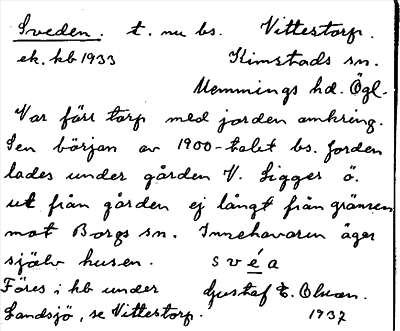 Sveden. t. nu bs. Vittestorp.
ek. kb 1933 Kimstads sn.
Memmings hd. Ögl.
Var förr torp med jorden omkring.
I en början av 1900-talet bs. Jorden
lades under gården V. Ligger ö.
ut från gården ej långt från gränsen
mot Borgs sn. Innehavaren äger
själv husen. svéa
Föres i kb under Gustaf E. Olsson.
Landsjö, se Vittestorp. 1937